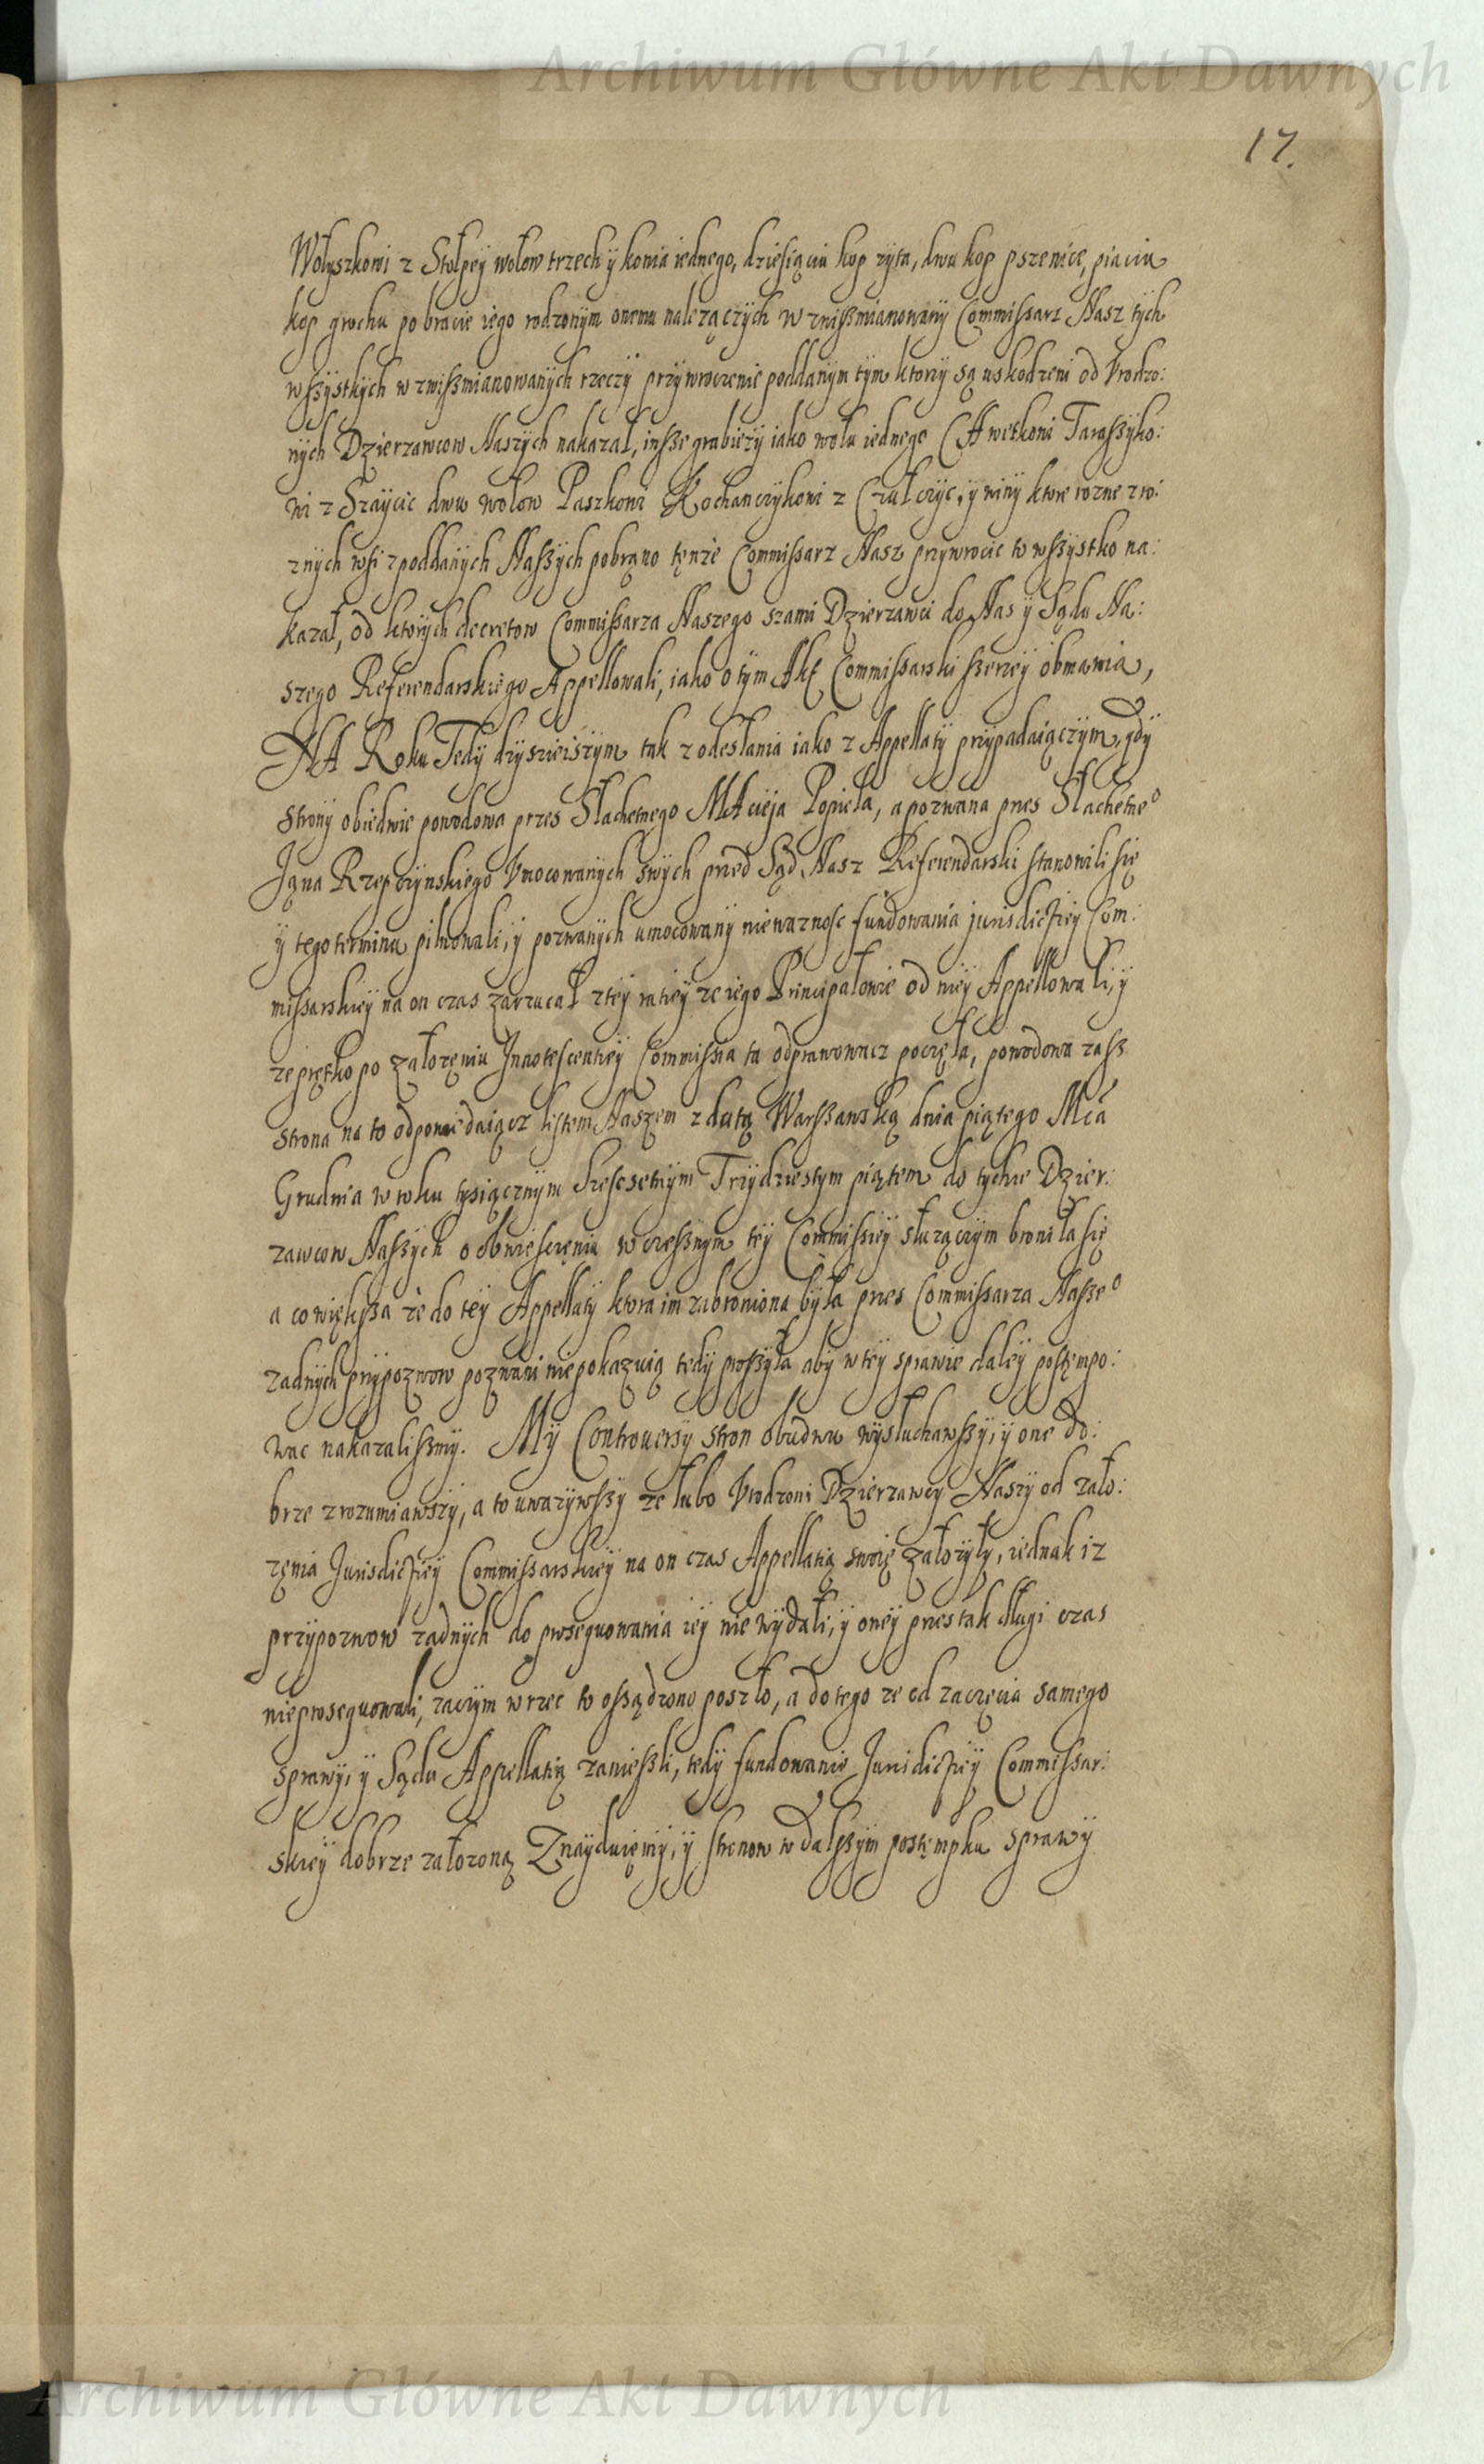 Archiwum Główne Akt Dawnych
17.
Wołyszkowi z Stołpey wołow trzech y konia iednego, dziesiąciu kop zyta, dwu kop pszenice, piaciu
kop grochu po bracie iego rodzonym onemu nalezączych wzwißmianowany Commissarz Nasz tych
wszystkych wzwißmianowanych rzeczy przywroczenie poddanym tym ktorzy są uskodzeni od Vrodzo:
nych Dzierzawcow Naszych nakazał, insze grabiezy iako wołu iednego Chwetkowi Taraszyko:
wi z Szaycic dwu wołow Paszkowi Kochanczykowi z Czułczyc, y winy ktore rozne z ro:
znych wsi z poddanych Naszych pobrano tęnże Commissarz Nasz przywrocic to wszystko na:
kazał, od ktorych decretow Commissarza Naszego szami Dzierzawci do Nas y Sądu Na:
szego Referendarskiego Appellowali, iako o tym Akt Commissarski szerzey obmawia,
NA Roku Tedy dzyszieiszym tak z odesłania iako z Appellaty przypadaiączym, gdy
strony obiedwie powodowa przes Słachetnego MAcieja Popiela, a pozwana przes Słachetneº
Jąna Rzepczynskiego Vmocowanych swych przed Sąd Nasz Referendarski stanowili się
y tego terminu pilnowali, y pozwanych umocowany niewaznosc fundowania jurisdictiey Com:
missarskiey na on czas zarzucał z tey ratiey ze iego Principałowie od niey Appellowali, y
ze prętko po załozęniu Innotescentiey Commissia ta odprawowacz poczęła, powodowa zasz
strona na to odpowiedaiącz listem Naszem z datą Warszawską dnia piątego Mca
Grudnia w roku tysiącznym szescsetnym Trzydziestym piątem do tychze Dzier:
zawcow Naszych o obwiesczęniu wczesznym tey Commissiey słuzączym broniła się
a co większa że do tey Appellaty ktora im zabroniona była przes Commissarza Naszeº
zadnych przypozwow pozwani niepokazuią tedy proszyła aby w tey sprawie daley postęmpo:
wac nakazalismy. My Controversy stron obudwu wysłuchawszy, y one do:
brze zrozumiawszy, a to uwazywszy ze lubo Vrodzoni Dzierzawcy Naszy od zało:
zęnia Jurisdictiey Commissarskiey na on czas Appellatią swoię załozyły, iednak iz
przypozwow zadnych do prosequowania iey nie wydali, y oney przes tak długi czas
nieprosequowali, zaczym w rzec to osządzono poszło, a do tego ze od zaczęcia samego
sprawy, y Sądu Appellatią zanieszli, tedy fundowanie Juridictiey Commissar:
skiey dobrze załozoną Znayduięmy, y stronow w dalszym postęmpku sprawy
Archiwum Główne Akt Dawnych